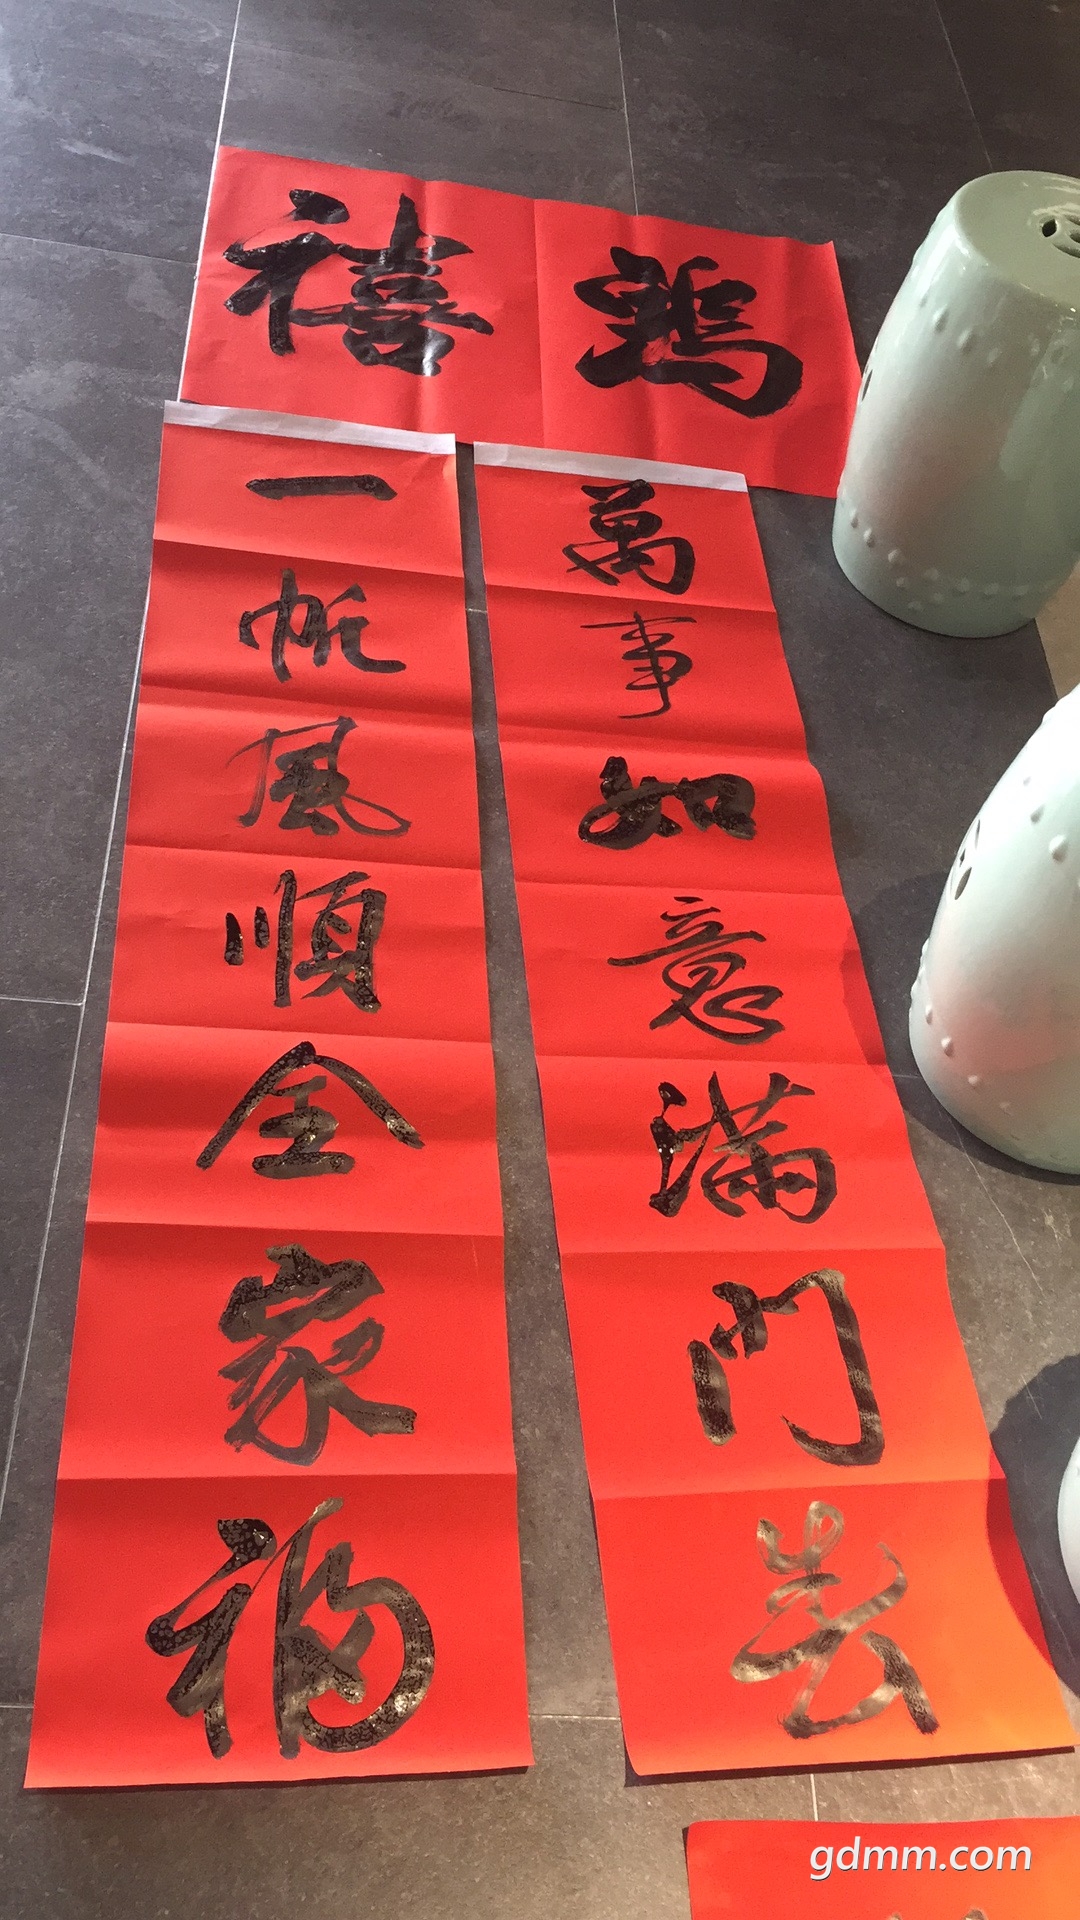 禧
萬事如意滿門春
一帆風順全家福
gdmm.com